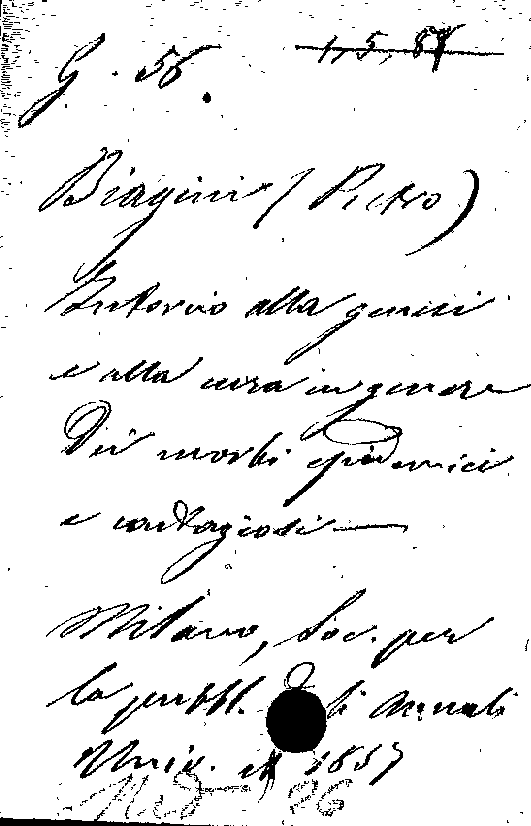 G. 56. 1,5,87
Biagini (Pietro)
Intorno alla genesi
e alla cura in genere
Dei morbi epidemici
e contagiosi —
Milano, Soc. per
la pubbl. d li Annali
Univ. 1857
Med 96